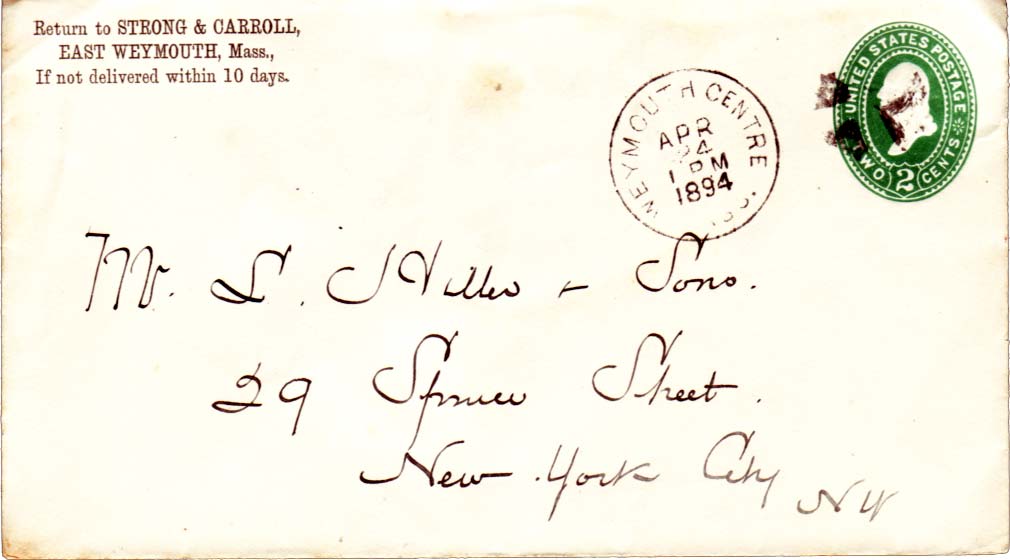 Return to STRONG & CARROLL,
EAST WEYMOUTH, Mass.,
If not delivered within 10 days.
WEYMOUTH CENTRE
APR
24
1 PM
1894
UNITED STATES POSTAGE
TWO 2 CENTS
Mr. S. Hiller & Sons.
29 Spruce Street.
New York City
NY